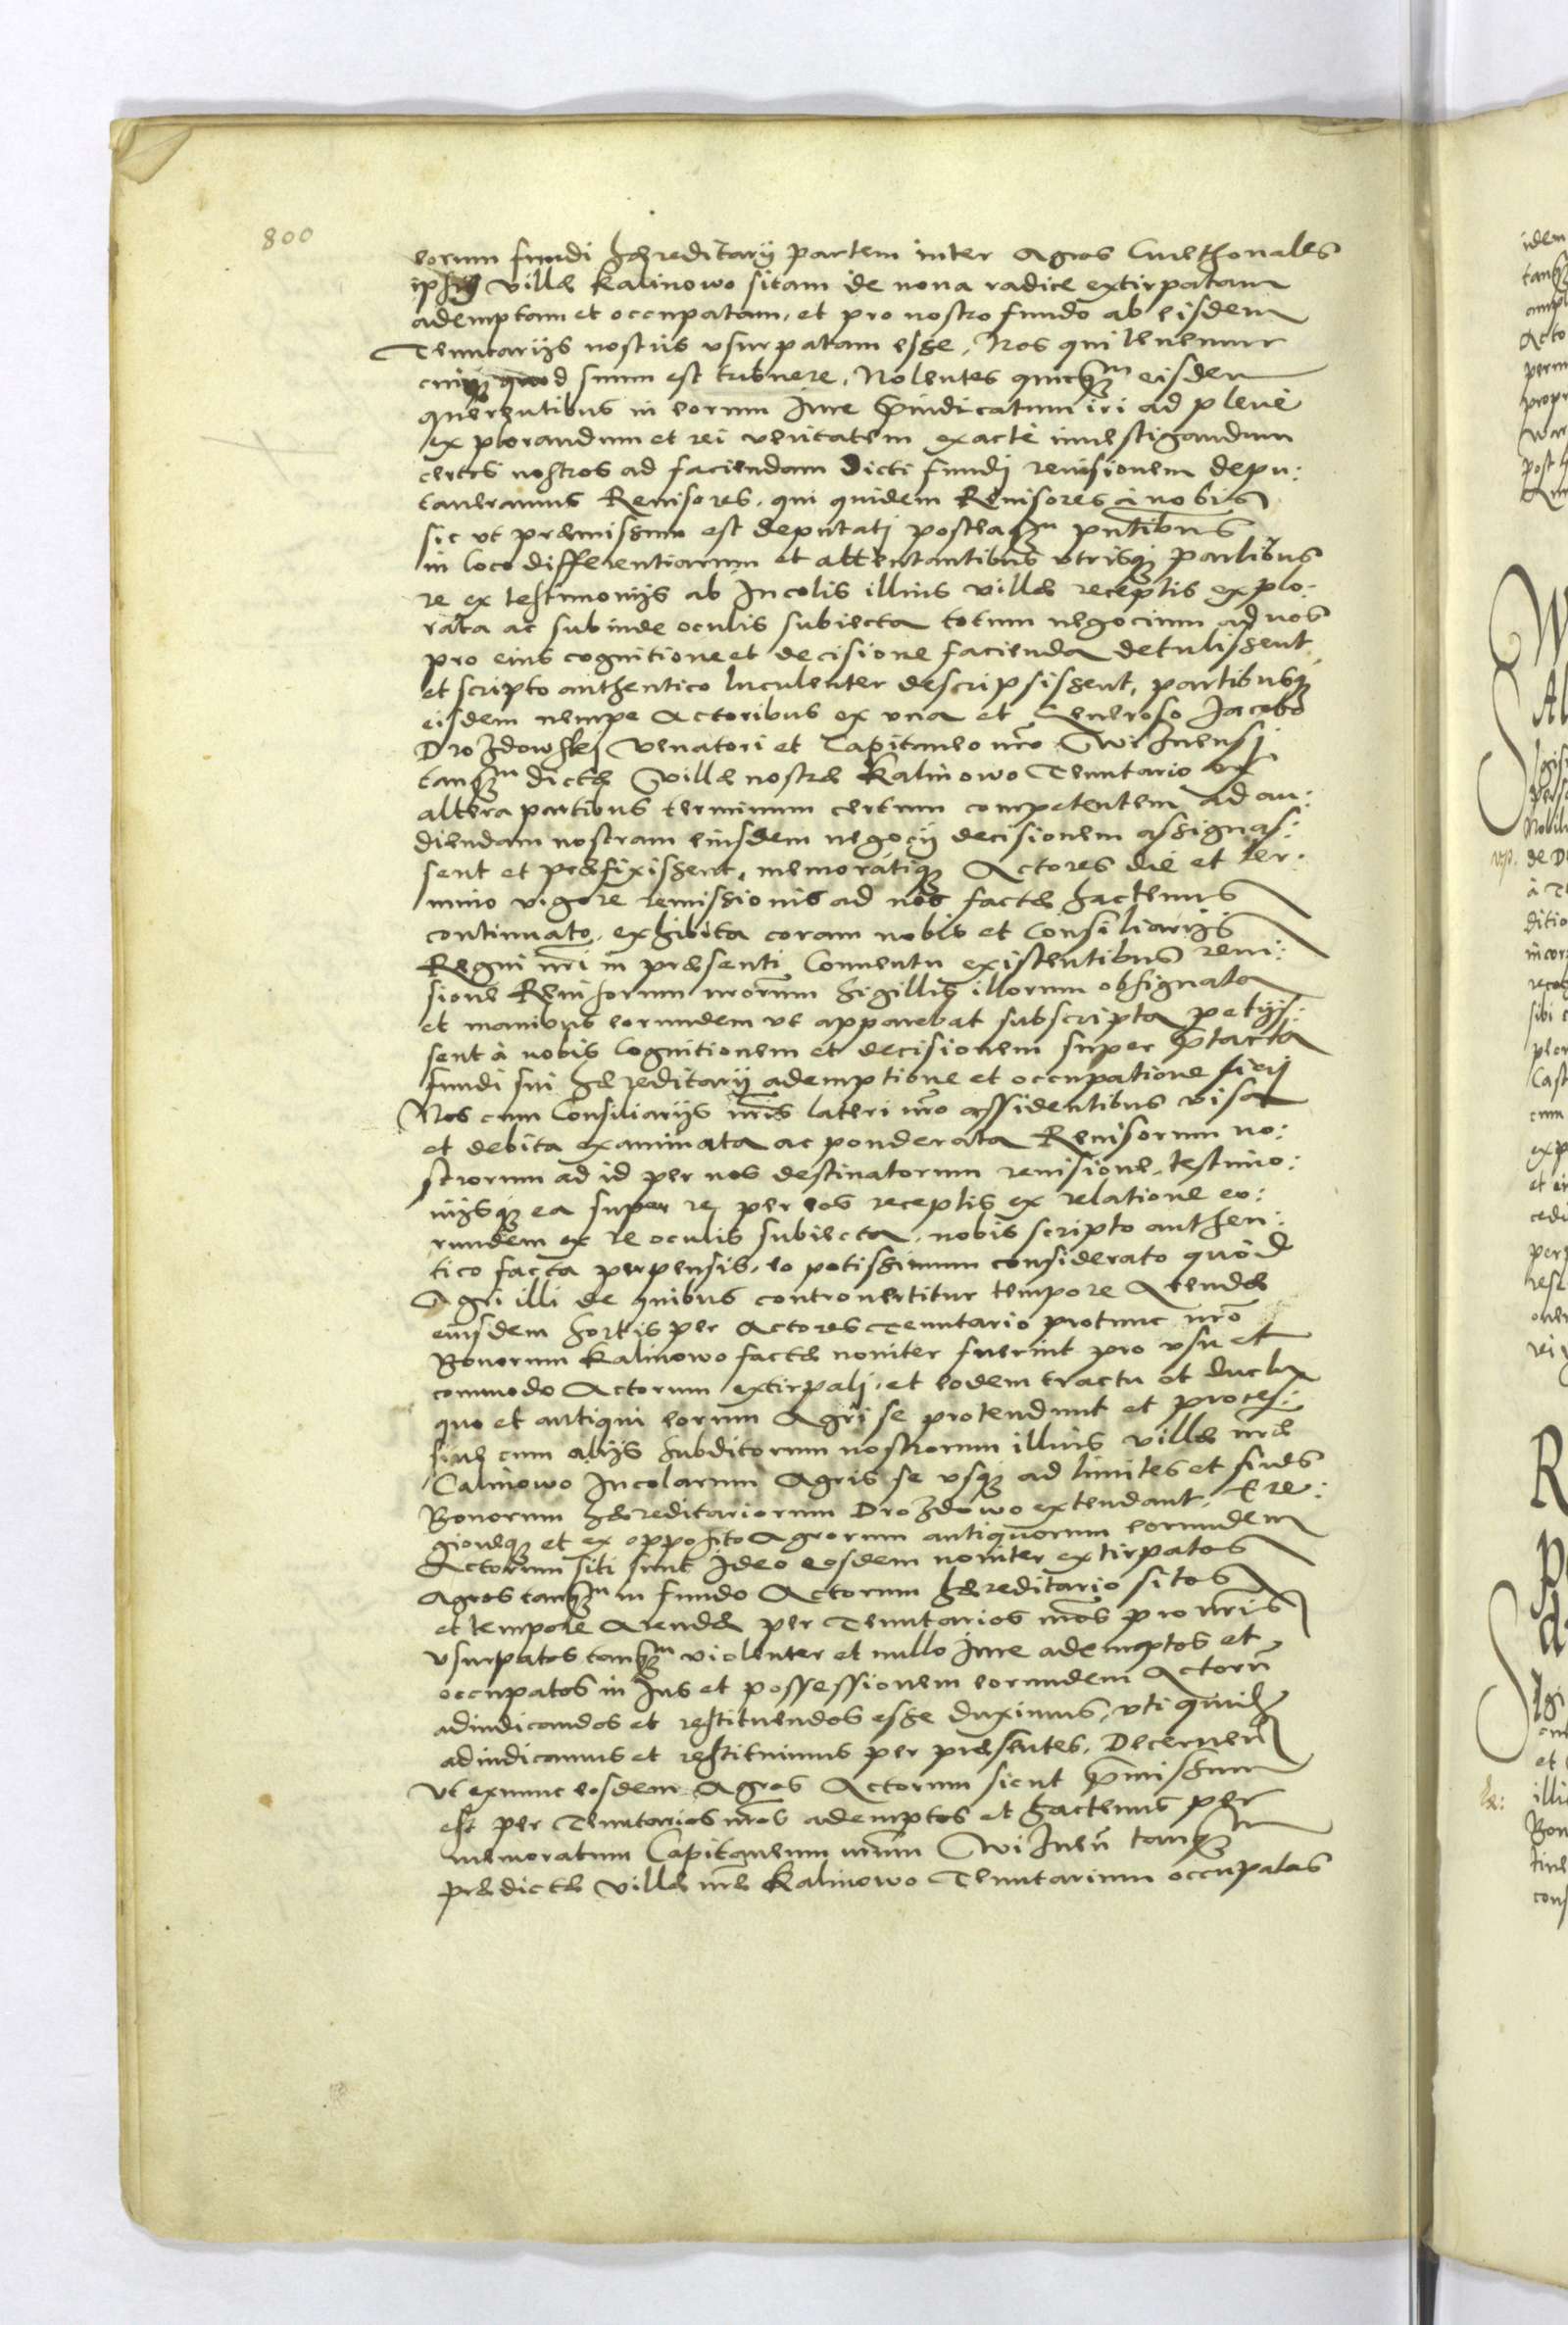 800
eorum fundi hæreditarij partem inter Agros Cmethonales
ipsius villæ Kalinowo sitam de noua radice extirpatam
ademptam et occupatam, et pro nostro fundo ab eisdem
Tenutarijs nostris vsurpatam esse, Nos qui tenemur
cuiq3 quod suum est tribuere, Nolentes quicq3m eisdem
querentibus in eorum Iure p̄iudicatum iri ad plene
explorandum et rei veritatem exacte inuestigandum
certos nostros ad faciendam Dicti fundj reuisionem depu:
taueramus Reuisores, qui quidem Reuisores à nobis
sic vt præmissum est deputatj posteaq3m pn̄tibus
in loco differentiarum et attentantibus vtrisq3 partibus
re ex testimonijs ab Incolis illius villæ receptis explo:
rata ac subinde oculis subiecta totum negocium ad nos
pro eius cognitione et decisione facienda detulissent,
et scripto authentico luculenter descripsissent, partibusq3
eisdem nempe Actoribus ex vna et Generoso Jacobo
Drozdowskj Venatori et Capitaneo nr̄o Wiznensj
tanq3m dictæ Villæ nostræ Kalinowo Tenutario ex
altera partibus terminum certum competentem ad au:
diendam nostram eiusdem negocij decisionem assignas:
sent et præfixissent, memoratiq3 Actores die et ter:
mino vigore remissionis ad nos factæ hactenus
continuato, exhibita coram nobis et Consiliarijs
Regni nr̄i in præsenti Conuentu existentibus reui:
sione Reuisorum nr̄orum Sigillis illorum obsignata
et manibus eorundem vt apparebat subscripta petijs:
sent à nobis Cognitionem et decisionem super p̄tacta
fundi sui hæreditarij ademptione et occupatione fierj
Nos cum Consiliarijs nr̄is lateri nr̄o assidentibus visa
et debita examinata ac ponderata Reuisorum no:
strorum ad id per nos destinatorum reuisione, testimo:
nijsq3 ea super re per eos receptis ex relatione eo:
rundem ex re oculis subiecta, nobis scripto authen:
tico facta perpensis, eo potissimum considerato quòd
Agri illi de quibus controuertitur tempore Arendæ
eiusdem sortis per Actores Tenutario protunc nr̄o
Bonorum Kalinowo factæ nouiter fuerint pro vsu et
commodo Actorum extirpatj, et eodem tractu et ductu
quo et antiqui eorum Agri se protendunt et proces:
siue cum alijs Subditorum nostrorum illius villæ nr̄æ
Calinowo Incolarum Agris se vsq3 ad limites et fines
Bonorum hæreditariorum Drozdowo extendant, E re:
gioneq3 et ex opposito Agrorum antiquorum eorundem
Actorum siti sunt Ideo eosdem nouiter extirpatos
Agros tanq3m in fundo Actorum hæreditario sitos
et tempore Arendæ per Tenutarios nr̄os pro nr̄is
vsurpatos tanq3m violenter et nullo Iure ademptos et
occupatos in Ius et possessionem eorundem Actorū
adiudicandos et restituendos esse duximus, vti quidē
adiudicamus et restituimus per præsentes, Decernen̄
Vt exnunc eosdem Agros Actorum sicut p̄missum
est per Tenutarios nr̄os ademptos et hactenus per
memoratum Capitaneum nr̄um Wiznen̄ tanq3m
prædictæ villæ nr̄æ Kalinowo Tenutarium occupatas